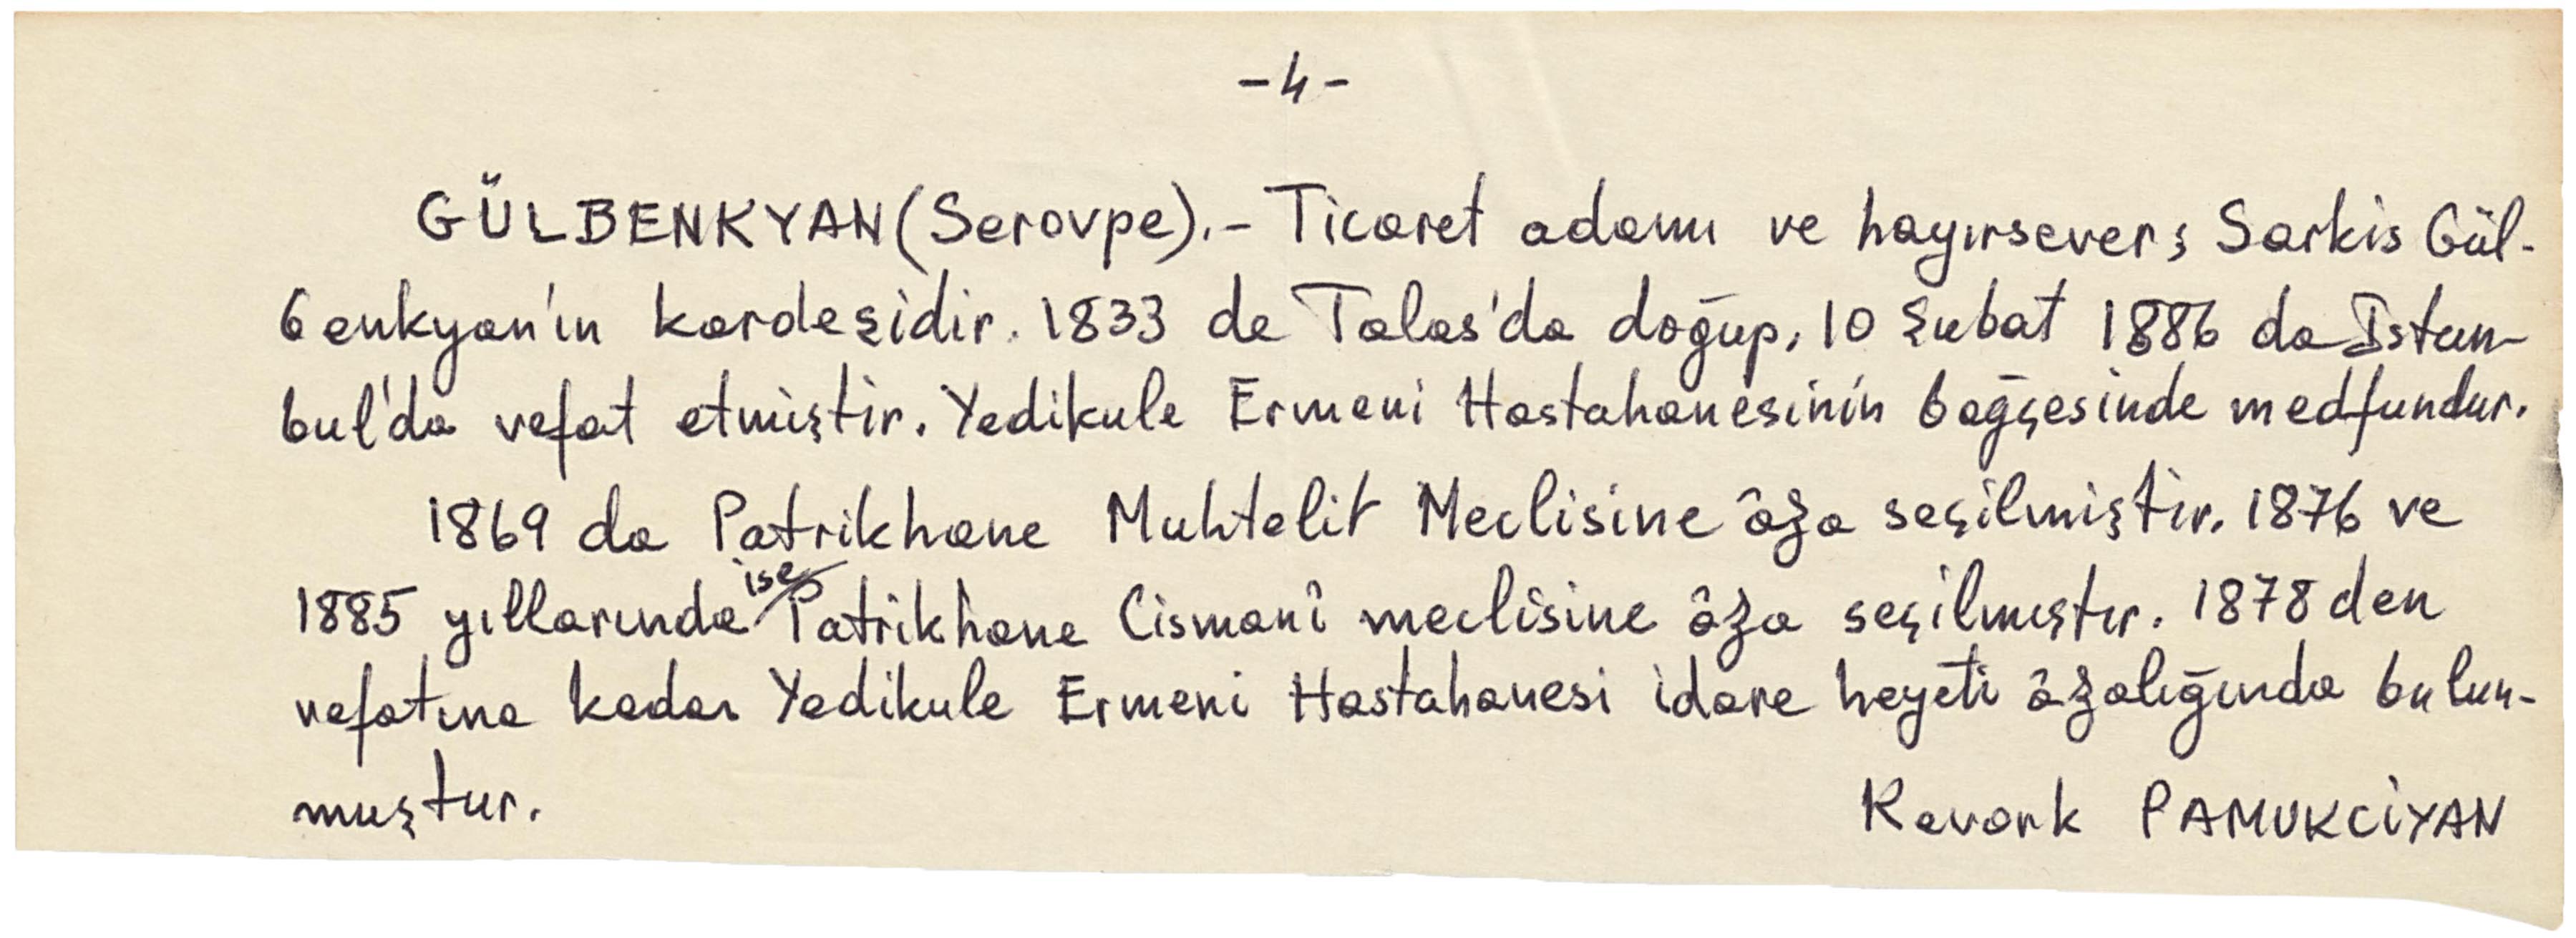 -4-
GÜLBENKYAN (Serovpe).- Ticaret adamı ve hayırsever; Sarkis Gül-
benkyan'ın kardeşidir. 1833 de Talas'da doğup, 10 Şubat 1886 da İstan-
bul'da vefat etmiştir. Yedikule Ermeni Hastahanesinin bağçesinde medfundur.
1869 da Patrikhane Muhtelit Meclisine âza seçilmiştir. 1876 ve
1885 yıllarında ise Patrikhane Cismanî meclisine âza seçilmıştır. 1878 den
vefatına kadar Yedikule Ermeni Hastahanesi idare heyeti âzalığında bulun-
muştur.
Kevork PAMUKCİYAN